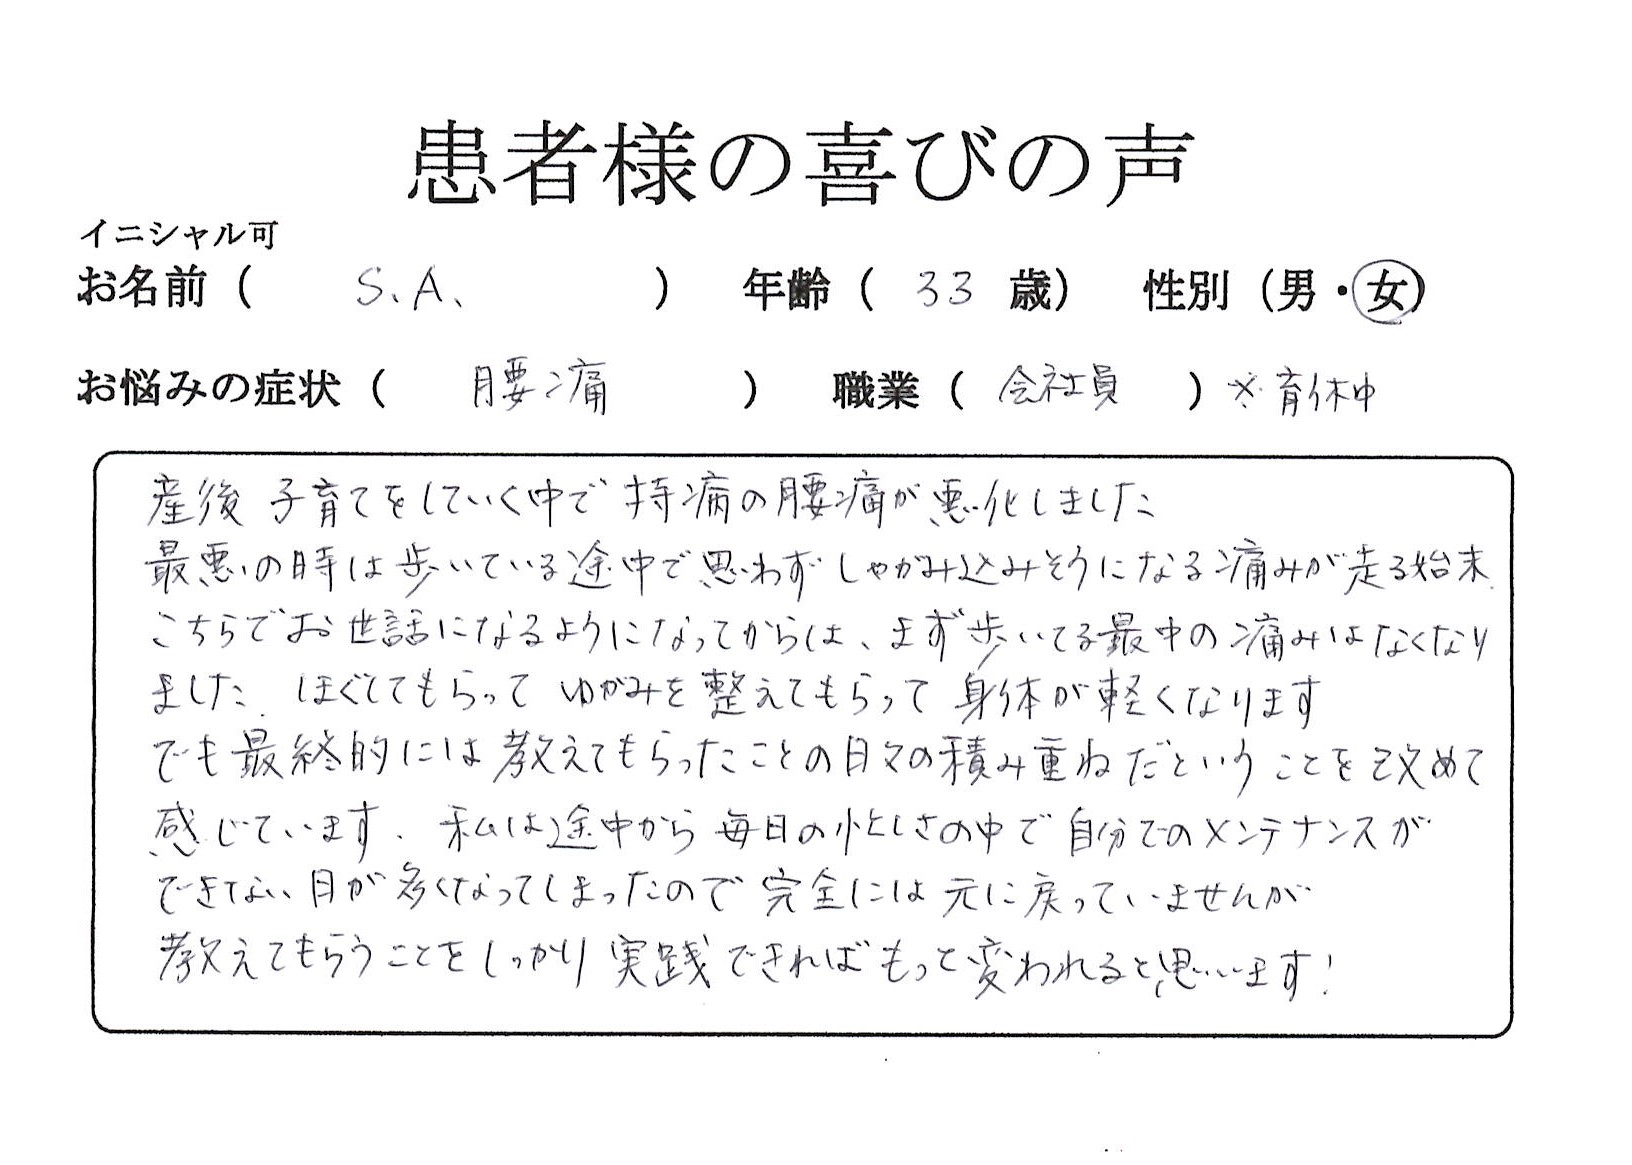 患者様の喜びの声
イニシャル可
お名前（ S.A. ） 年齢（ 33 歳） 性別（男・女）
お悩みの症状（ 腰痛 ） 職業（ 会社員 ）※育休中
産後 子育てをしていく中で 持病の腰痛が悪化しました
最悪の時は歩いている途中で思わずしゃがみ込みそうになる痛みが走る始末.
こちらでお世話になるようになってからは、まず歩いてる最中の痛みはなくなり
ました. ほぐしてもらって ゆがみを整えてもらって 身体が軽くなります
でも最終的には教えてもらったことの日々の積み重ねだということを改めて
感じています. 私は途中から 毎日の忙しさの中で 自分でのメンテナンスが
できない日が多くなってしまったので 完全には元に戻っていませんが
教えてもらうことをしっかり実践できればもっと変われると思います!